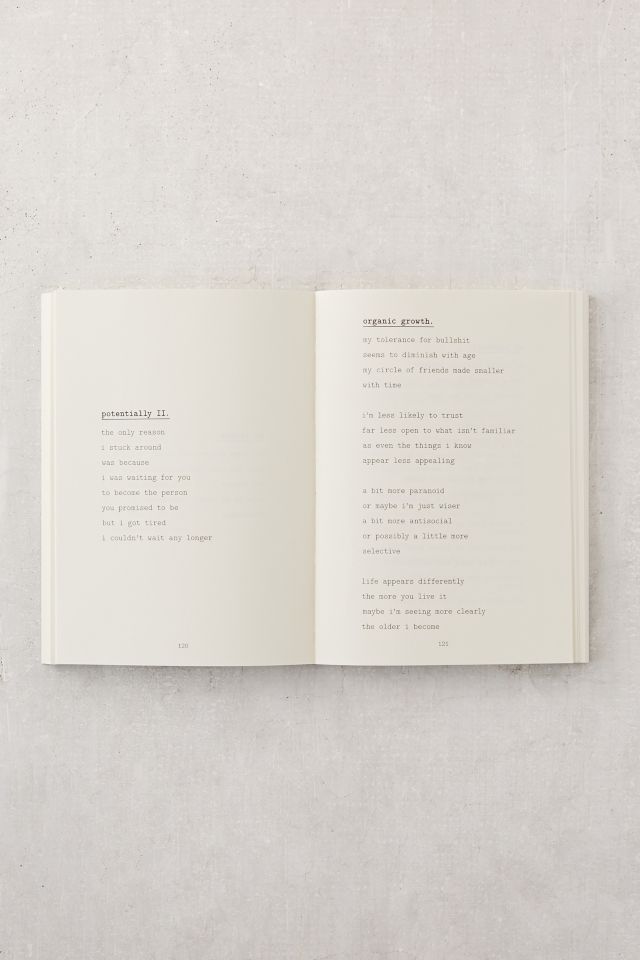 potentially II.
the only reason
i stuck around
was because
i was waiting for you
to become the person
you promised to be
but i got tired
i couldn't wait any longer
120
organic growth.
my tolerance for bullshit
seems to diminish with age
my circle of friends made smaller
with time
i'm less likely to trust
far less open to what isn't familiar
as even the things i know
appear less appealing
a bit more paranoid
or maybe i'm just wiser
a bit more antisocial
or possibly a little more
selective
life appears differently
the more you live it
maybe i'm seeing more clearly
the older i become